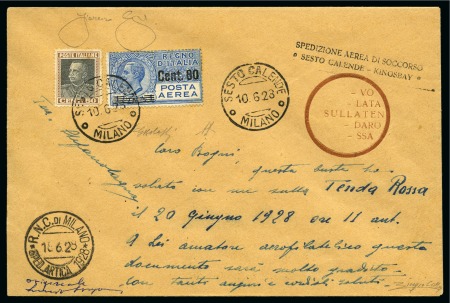 POSTE ITALIANE
CENT. 50
REGNO
D'ITALIA
Cent. 80
POSTA
AEREA
SESTO CALENDE
10.6.28
MILANO
SESTO CALENDE
10.6.28
MILANO
SPEDIZIONE AEREA DI SOCCORSO
SESTO CALENDE - KINGSBAY
- VO
LATA
SULLATEN
DARO
SSA
Caro Bogni
questa busta ha
volato con me sulla Tenda Rossa
il 20 giugno 1928 ore 11 ant.
A Lei amatore questo
documento sarà molto gradito
con tanti auguri e cordiali saluti
R.N.C. DI MILANO
10.6.28
SPED. ARTICA 1928